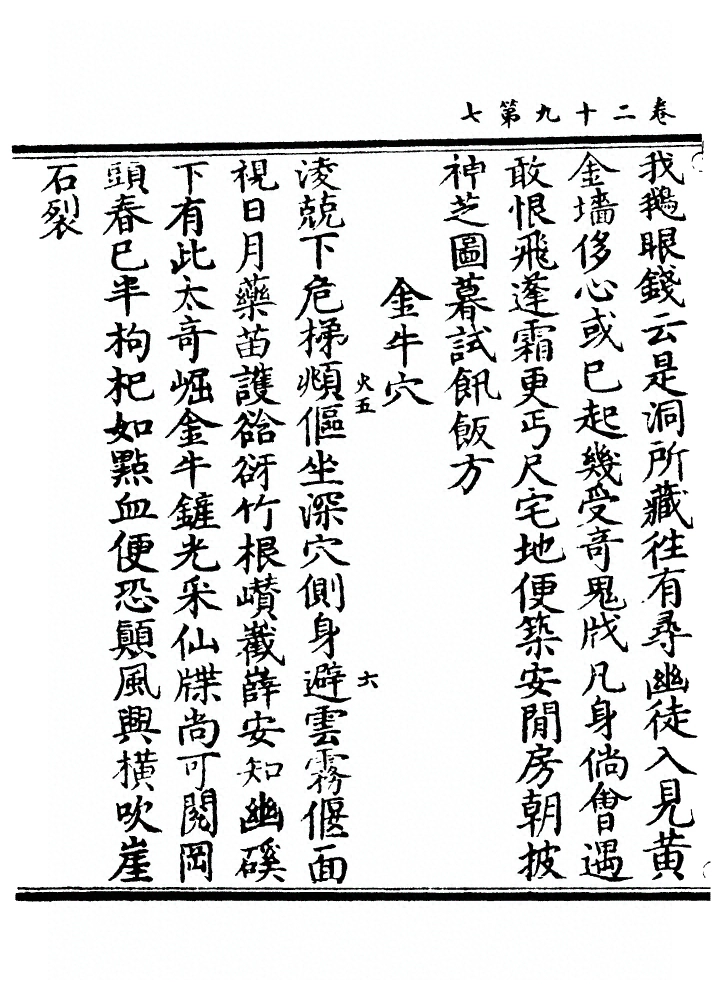 卷二十九第七
我鵝眼錢云是洞所藏徃有尋幽徒入見黄
金墻侈心或已起幾受竒鬼戕凡身倘曾遇
敢恨飛蓬霜更丐尺宅地便築安閒房朝披
神芝圖暮試飢飯方
金牛穴
淩兢下危梯頫傴坐深穴側身避雲霧偃面
視日月藥苗護谽谺竹根巑巀嶭安知幽磎
下有此太竒崛金牛鏟光采仙牒尚可閲岡
頭春已半枸杞如點血便恐顛風興橫吹崖
石裂
火五
六